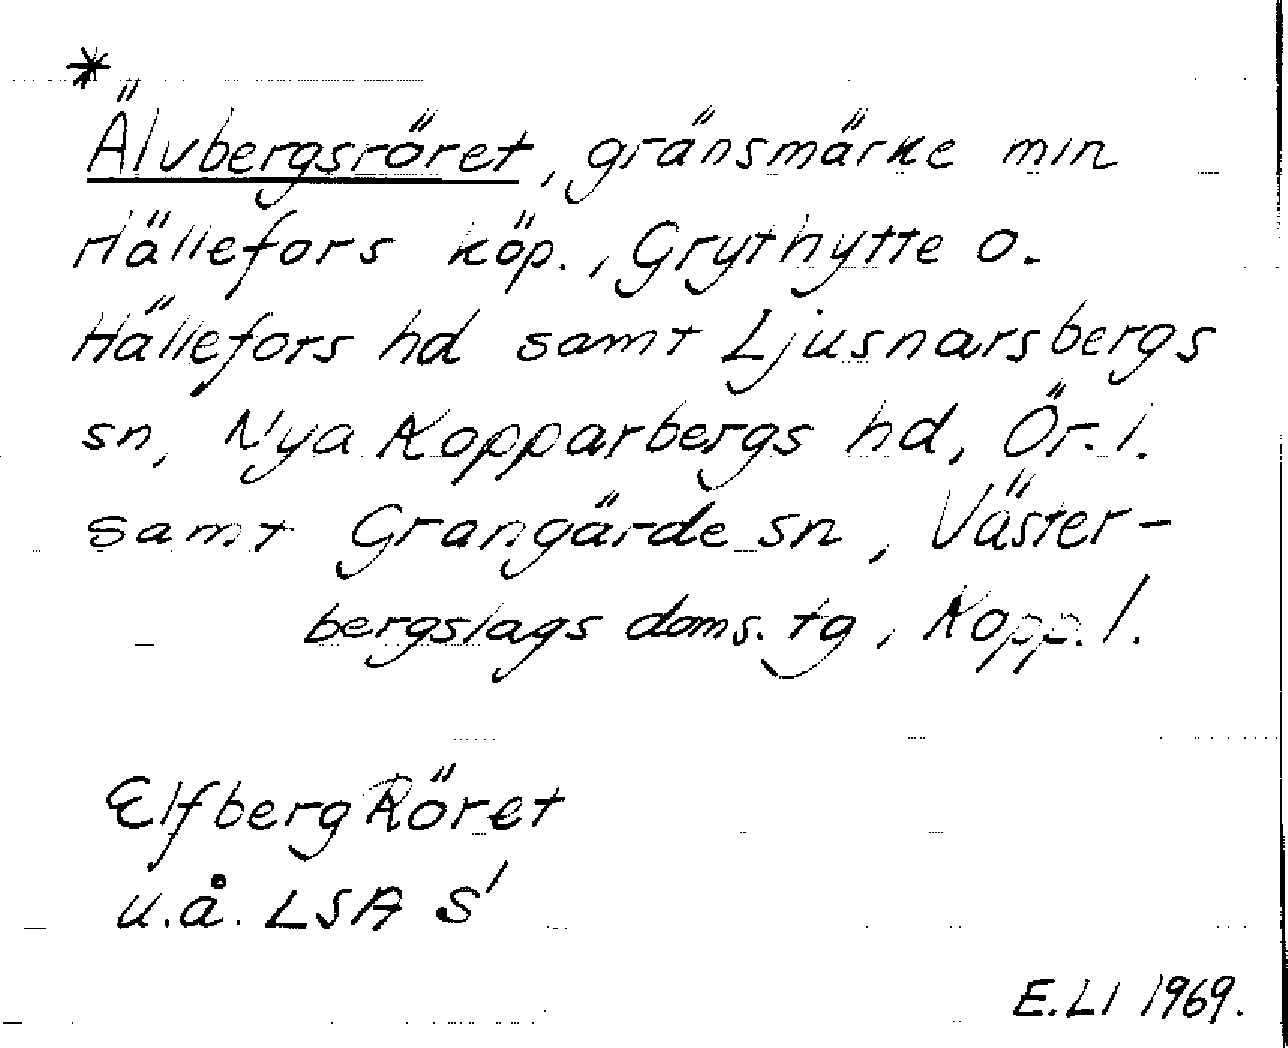 *
Älvbergsröret, gränsmärke m/n
Hällefors köp., Grythytte o.
Hällefors hd samt Ljusnarsbergs
sn, Nya Kopparbergs hd, Ör. l.
samt Grangärde sn, Väster-
bergslags doms. tg, Kopp. l.
Elfberg Röret
u.å. LSA S'
E.LI 1969.